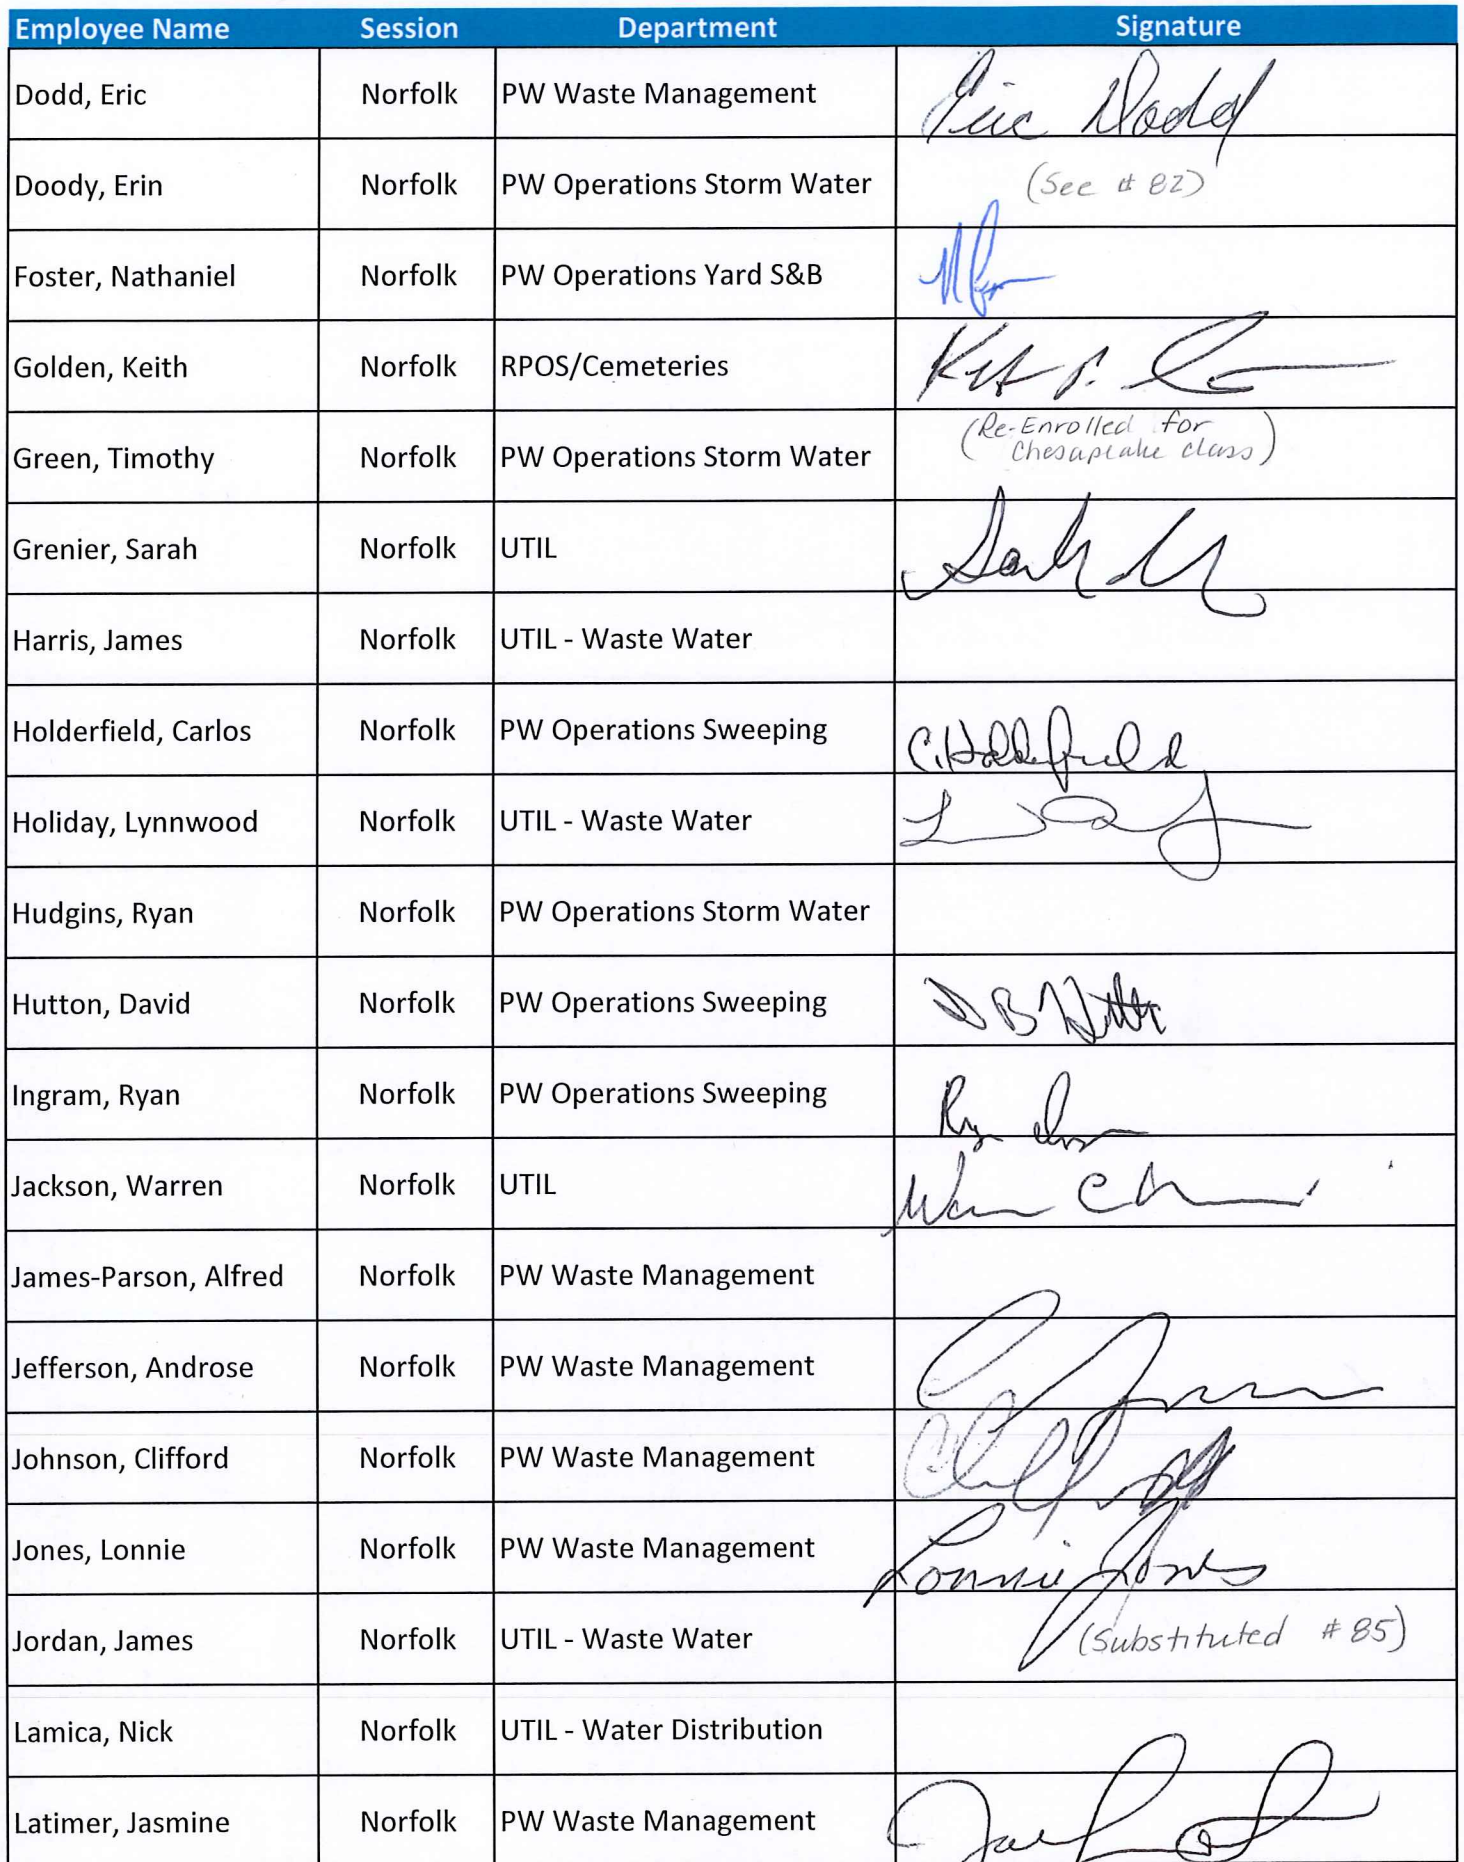 Employee Name Session Department Signature
Dodd, Eric Norfolk PW Waste Management Eric Dodd
Doody, Erin Norfolk PW Operations Storm Water (See # 82)
Foster, Nathaniel Norfolk PW Operations Yard S&B
Golden, Keith Norfolk RPOS/Cemeteries
Green, Timothy Norfolk PW Operations Storm Water (Re-Enrolled for
Chesapeake class)
Grenier, Sarah Norfolk UTIL
Harris, James Norfolk UTIL - Waste Water
Holderfield, Carlos Norfolk PW Operations Sweeping C. Holderfield
Holiday, Lynnwood Norfolk UTIL - Waste Water
Hudgins, Ryan Norfolk PW Operations Storm Water
Hutton, David Norfolk PW Operations Sweeping
Ingram, Ryan Norfolk PW Operations Sweeping
Jackson, Warren Norfolk UTIL
James-Parson, Alfred Norfolk PW Waste Management
Jefferson, Androse Norfolk PW Waste Management
Johnson, Clifford Norfolk PW Waste Management
Jones, Lonnie Norfolk PW Waste Management Lonnie Jones
Jordan, James Norfolk UTIL - Waste Water (Substituted # 85)
Lamica, Nick Norfolk UTIL - Water Distribution
Latimer, Jasmine Norfolk PW Waste Management